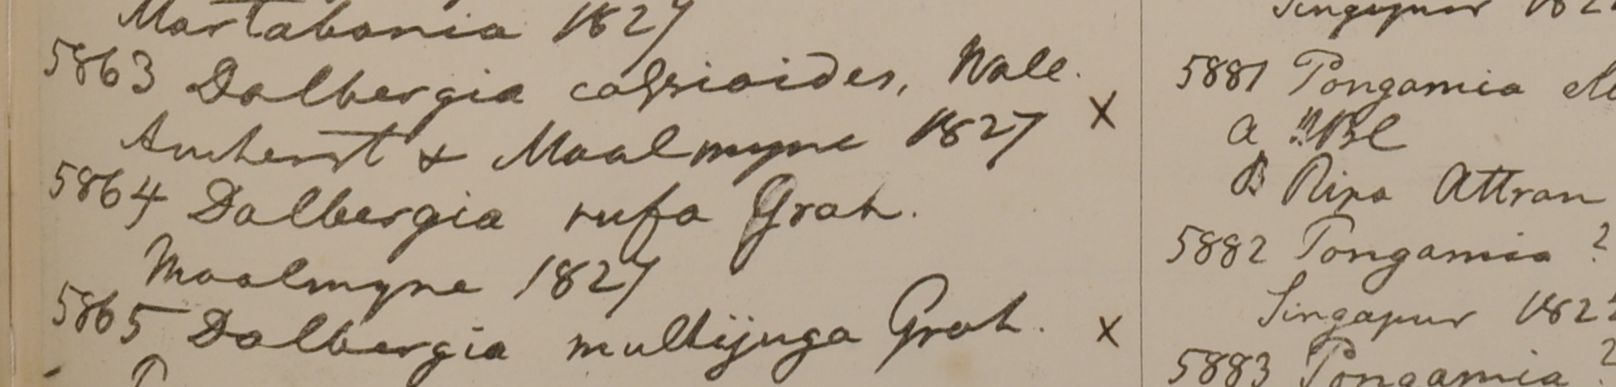 Martabania 1827
5863 Dalbergia cassioides, Wall.
Amherst & Moalmyne 1827 X
5864 Dalbergia rufa Grah.
Moalmyne 1827
5865 Dalbergia multijuga Grah. X
Singapur 182
5881 Pongamia
a HBC
B Ripa Attran
5882 Pongamia ?
Singapur 1822
5883 Pongamia ?